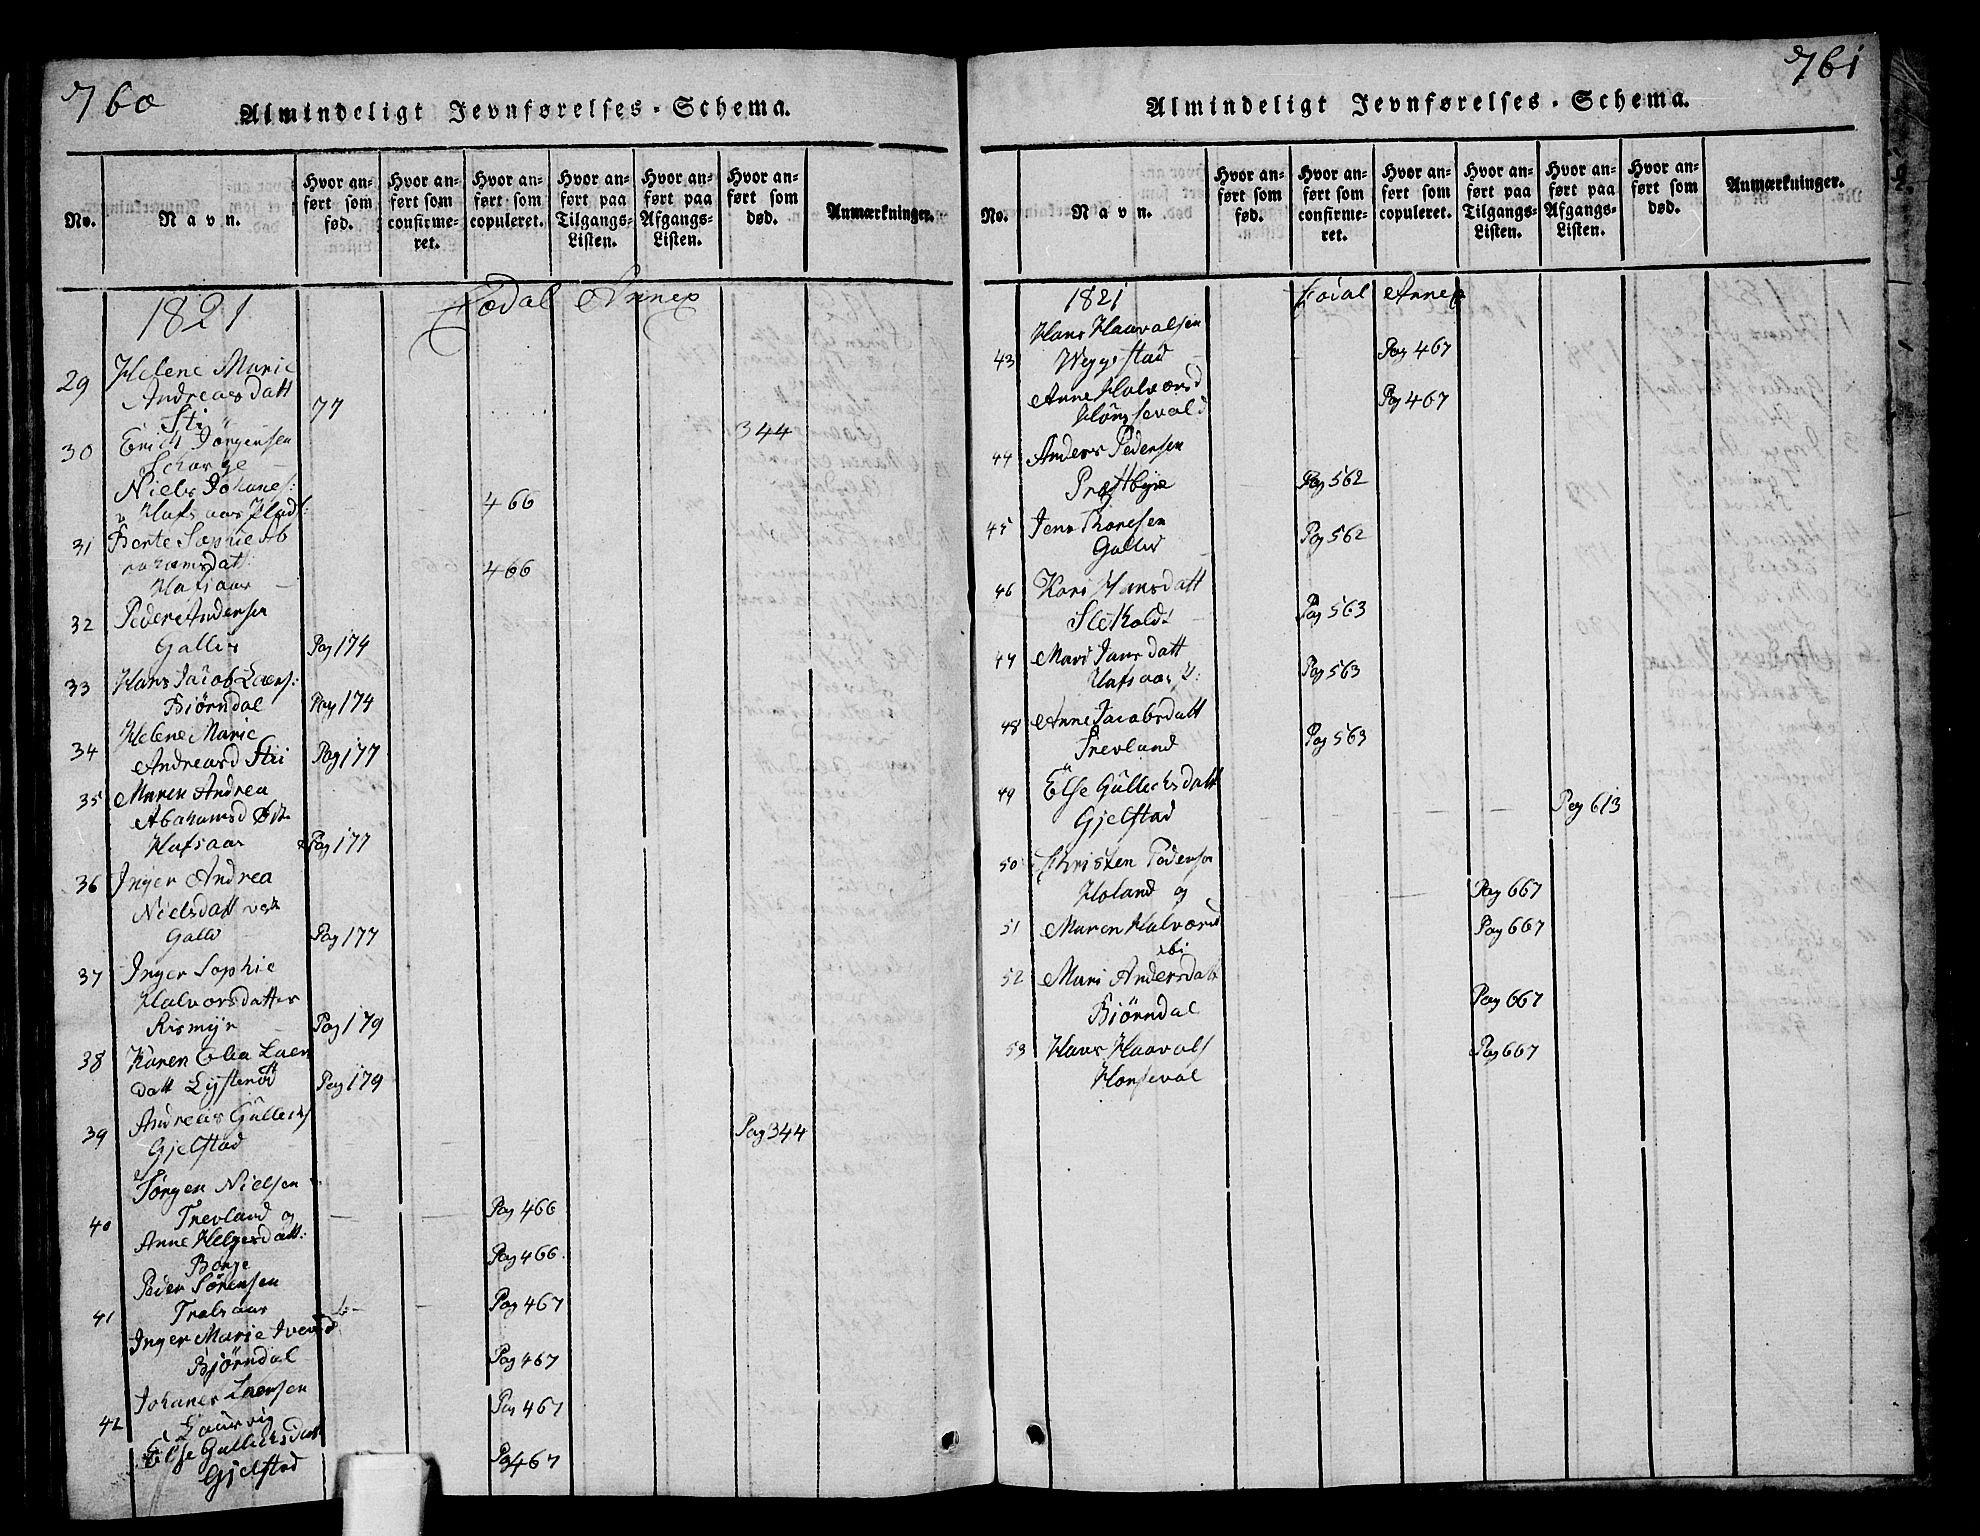 760
Almindeligt Jevnførelses-Schema.
No.
Navn.
Hvor an-
ført som
fød.
Hvor an-
ført som
confirme-
ret.
Hvor an-
ført som
copuleret.
Hvor an-
ført paa
Tilgangs-
Listen.
Hvor an-
ført paa
Afgangs-
Listen.
Hvor an-
ført som
død.
Anmærkninger.
1821 Eodal Annex
29 Helene Marie
Andreasdatt
Sti 77
30 Erich Jørgensen 344
Schorge
Niels Johanes:
Hafsaas Plads: 466
31 Berte Sophie Ab
rahamsdatt:
Hafsaas 466
32 Peder Andersen
Galler Pag 174
33 Hans Jacob Laers:
Biørndal Pag 174
34 Helene Marie
Andreasd Stii Pag 177
35 Maren Andrea
Abahamsd Øst
Hafsaas Pag 177
36 Inger Andrea
Nielsdatt vest
Galle Pag 177
37 Inger Sophie
Halvorsdatter
Rismyr Pag 179
38 Karen Elea Laers
datt Lysterød Pag 179
39 Andreas Gullechs
Gjelstad Pag 344
40 Jørgen Nielsen
Trevland og Pag 466
Anne Helgesdatt:
Borge Pag 466
41 Peder Sørensen
Tralsaas Pag 467
Inger Marie Iversd
Bjørndal Pag 467
42 Johanes Laersen
Laurvig Pag 467
Else Gullechsdatt
Gjelstad Pag 467
761
Almindeligt Jevnførelses-Schema.
No.
Navn.
Hvor an-
ført som
fød.
Hvor an-
ført som
confirme-
ret.
Hvor an-
ført som
copuleret.
Hvor an-
ført paa
Tilgangs-
Listen.
Hvor an-
ført paa
Afgangs-
Listen.
Hvor an-
ført som
død.
Anmærkninger.
1821 Eodal Annex
43 Hans Haavalsen
Veggestad Pag 467
Anne Halvorsd
Hønsevald Pag 467
44 Anders Pedersen
Præstbye Pag 562
45 Jens Thoresen
Galler Pag 562
46 Kari Hansdatt
Sletholdt Pag 563
47 Mari Jansdatt
Hafsaas Pag 563
48 Anne Jacobsdatt
Trevland Pag 563
49 Else Gullechsdatt
Gjelstad Pag 613
50 Christen Pedersen
Holand og Pag 667
51 Maren Halvorsd
ibi Pag 667
52 Mari Andersdatt
Biørndal Pag 667
53 Hans Haavals
Honseval Pag 667